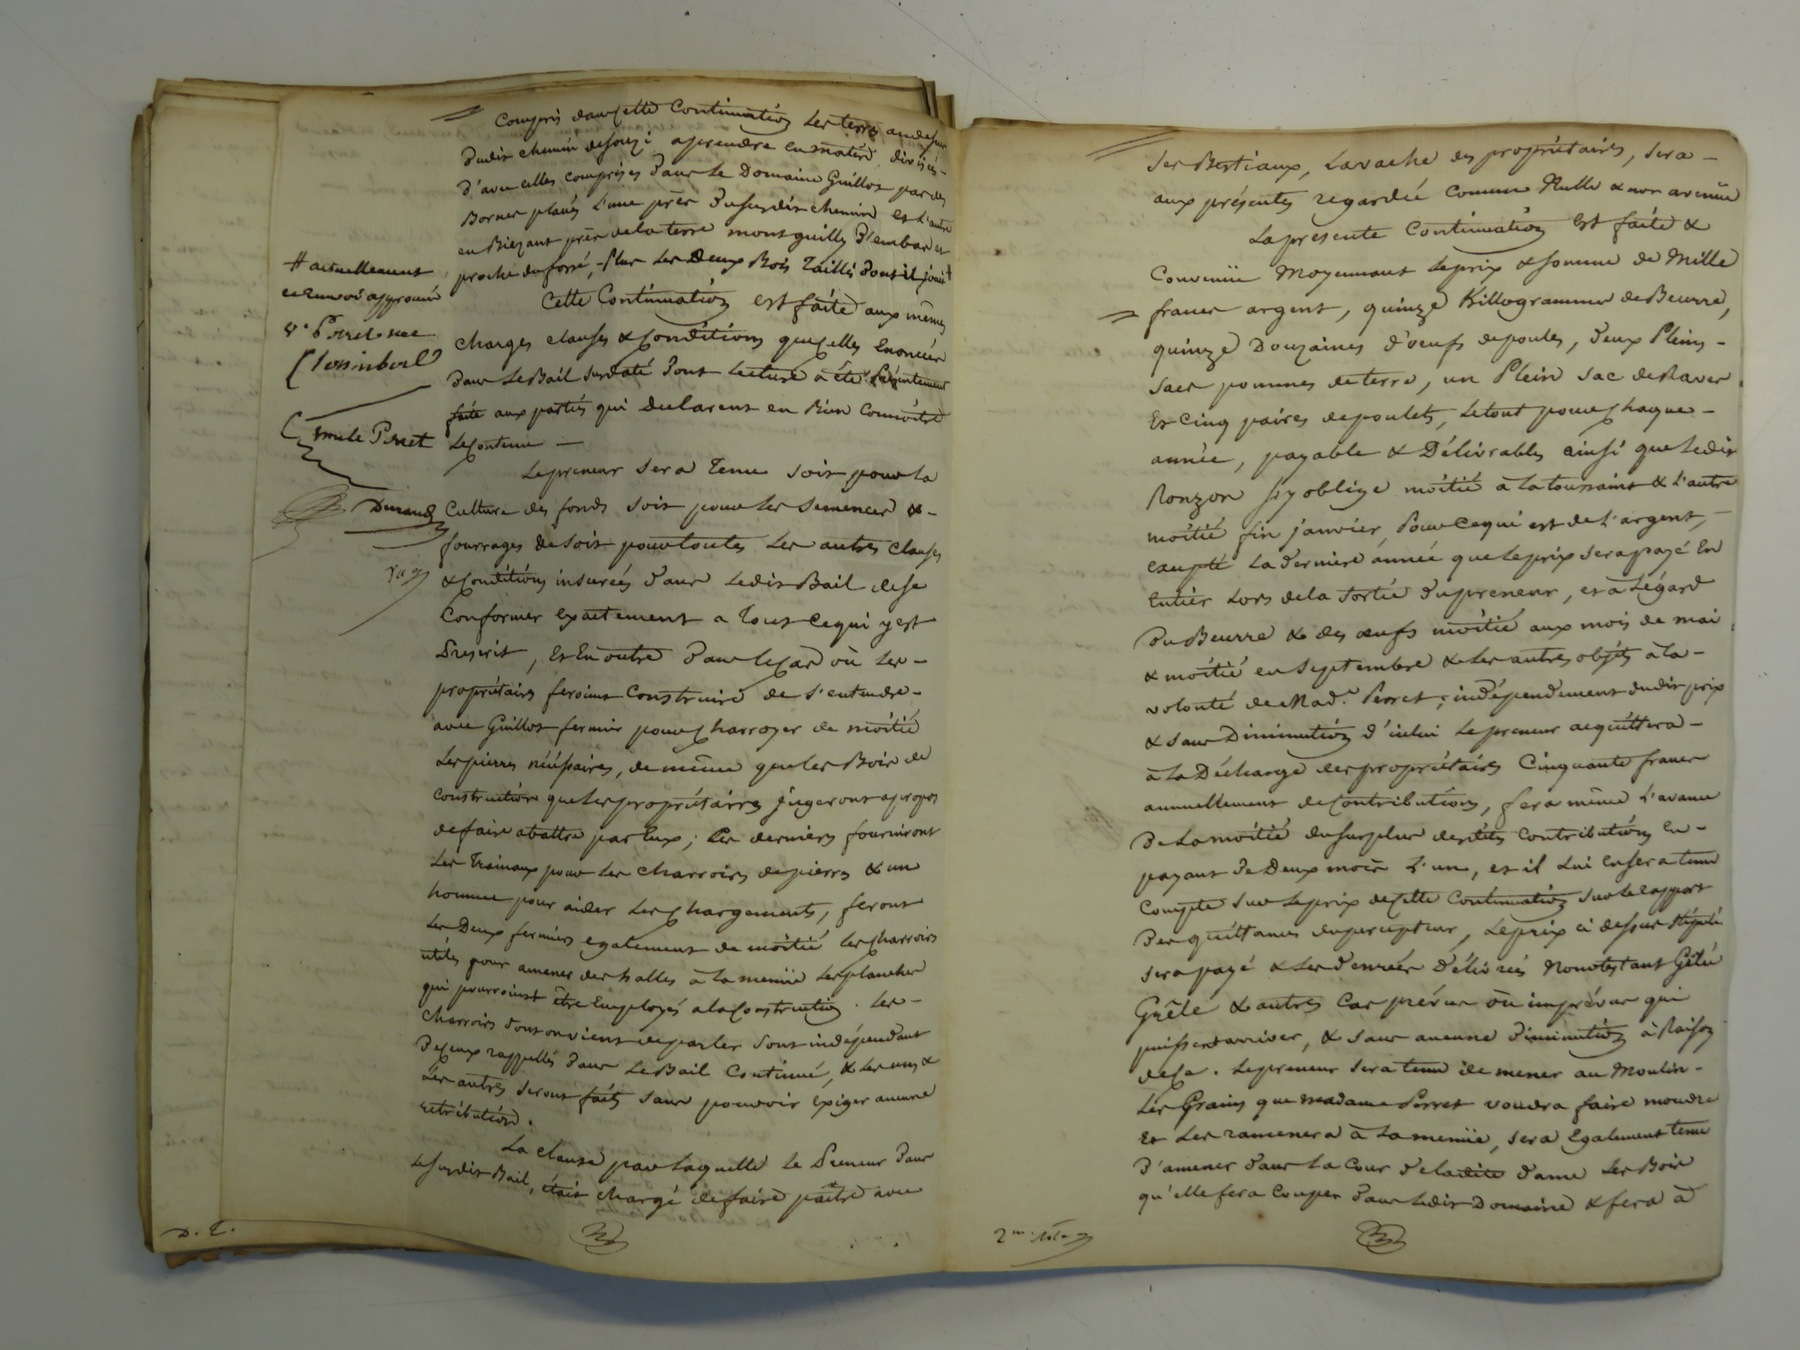 compris dans cette Continuation les terres au dessus
dudit chemin desouzi aprendre en matere, divisées
d'avec celles comprises dans le Domaine Guillot par des
Bornes placés l'une près du susdit chemin et l'autre
en Biezant près de la terre montguilly d'embas et
proche du fossé, plus les deux Bois Taillis dont il jouit #
# actuellement
ce renvoi approuvé
Ve Perret née
Cette Continuation est faite aux mêmes
charges clauses & Conditions que celles Enoncées
dans le Bail susdaté dont lecture à été
faite aux parties qui déclarent en Bien Connoitre
le Contenu —
Emile Perret
Le preneur sera Tenu soit pour la
Durand
Culture des fonds soit pour les semences &
fourrages & soit pour toutes les autres clauses
& Conditions inserées dans ledit Bail de se
Conformer exactement a Tout ce qui y est
Prescrit, Et En outre dans le Cas où les
propriétaires feroient Construire de s'entendre
avec Guillot fermier pour charroyer de moitié
les pierres nécéssaires, de même que les Bois de
construction que les propriétaires jugeront apropos
de faire abattre par Eux; Ces derniers fourniront
les Trainaux pour les charrois de pierres & un
homme pour aider les chargements, feront
les Deux fermiers egalement de moitié les charrois
utiles pour amener des halles à la menüe les planches
qui pourroient être Employés a la Construction. Les
charrois dont on vient de parler sont indépendant
de ceux rappellés dans le Bail Continué, & les uns &
les autres seront faits sans pouvoir exiger aucune
rétribution.
La clause par laquelle le Preneur dans
le susdit Bail, était chargé de faire paitre avec
D. T.
ses Bestiaux, la vache des propriétaires, sera
aux présentes regardée comme Nulle & non avenüe
La présente Continuation Est faite &
Convenüe Moyennant le prix & somme de Mille
francs argent, quinze Killogrammes de Beurre,
quinze Douzaines d'oeufs de poules, deux Pleins
sacs pommes de terre, un Plein sac de Raves
Et Cinq paires de poulets, le tout pour chaque
année, payable & Délivrables ainsi que ledit
Ronzon s'y oblige moitié à la toussaint & l'autre
moitié fin janvier, Pour ce qui est de l'argent,
excepté la dernière année que le prix sera payé En
Entier lors de la sortie du preneur, et à l'égard
Du Beurre & des oeufs moitié aux mois de mai
& moitié en septembre & les autres objets à la
volonté de Made. Perret; indépendement dudit prix
& sans Diminution d'icelui le preneur acquittera
à la Décharge des propriétaires Cinquante francs
annuellement de Contributions, fera même l'avance
De la moitié du surplus desdites Contributions En
payant de Deux mois l'un, et il lui en sera tenu
Compte sur le prix de cette Continuation sur le rapport
Des quittances du percepteur, le prix ci dessus stipulé
sera payé & les denrées délivrées Nonobstant Gelée
Grêle & autres Cas prévus où imprévus qui
puissent arriver, & sans aucune diminution à Raison
de ce. Le preneur sera tenu de mener au Moulin
les Grains que madame Perret voudra faire moudre
Et les ramenera à la menüe, sera Egalement tenu
D'amener dans la Cour de ladite dame les Bois
qu'elle fera Couper dans ledit Domaine & fera à